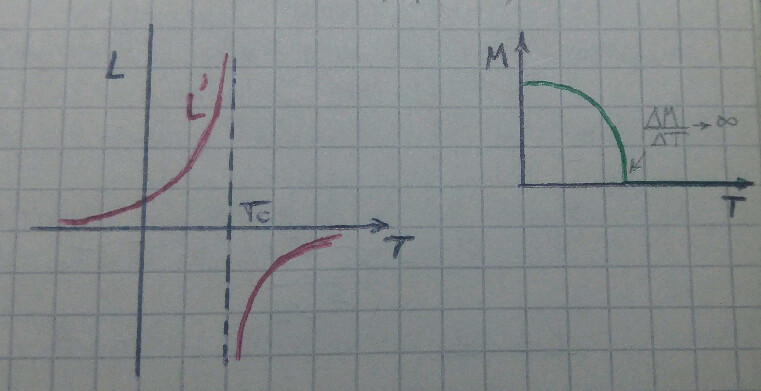 L
L'
Tc
T
M
ΔM/ΔT → ∞
T